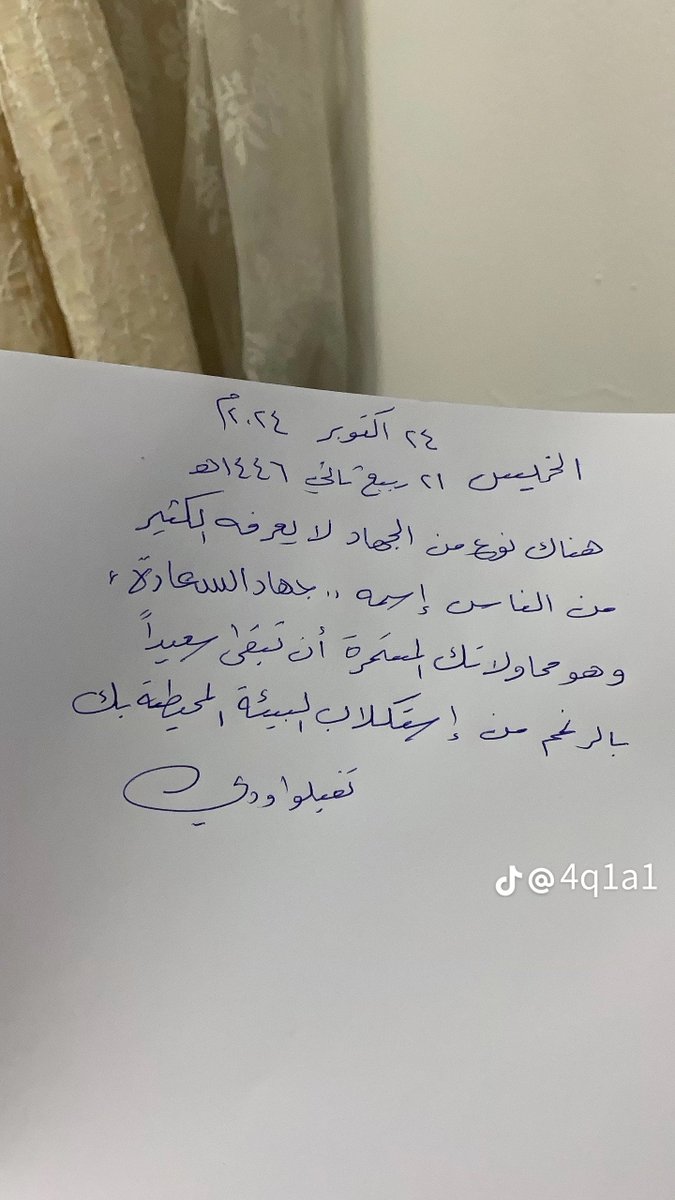 ٢٤ اكتوبر ٢٠٢٤م
الخميس ٢١ ربيع ثاني ١٤٤٦هـ
هناك نوع من الجهاد لا يعرفه الكثير
من الناس إسمه .. جهاد السعادة ،
وهو محاولاتك المستمرة أن تبقى سعيداً
بالرغم من إستكلاب البيئة المحيطة بك
تقبلوا ودي
@4q1a1